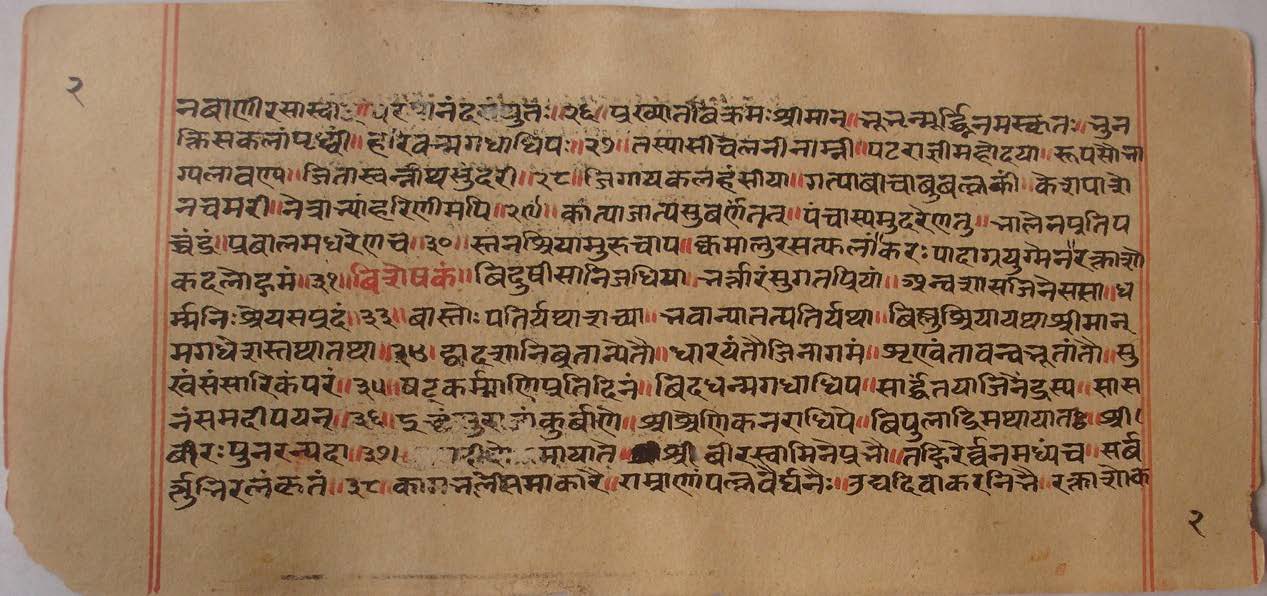 २
नबाणीरसास्वा नंद युतः॥२६॥ पुख्यातबिक्रमः श्रीमान्॥ भूभृन्मूर्द्ध्निनमस्कृतः॥ भुन
क्तिसकलांपृथ्वीं॥ हरिवन्मगधाधिपः॥२७॥ तस्यासीच्चेलनीनाम्नी॥ पटराज्ञीमहोदया॥ रूपसौभा
ग्यलावण्य॥ जितास्वर्न्नाथसुंदरी॥२८॥ जिगायकलहंसीया॥ गत्याबाचाबुबल्लकीं॥ केशपाशे
नचमरी॥ नेत्राभ्यांहरिणीमपि॥२९॥ कांत्याजात्यसुबर्णतृन्॥ पंचास्यमुदरेणतु॥ भालेनपुतिप
च्चंडुं॥ पुबालमधरेणच॥३०॥ स्तनश्रियामुरुचाप॥ कमालुरसत्फलां करः पादागुयुग्मेन रक्ताशो
कदलोद्गमं॥३१॥ बिशेषकं॥ बिदुषीसानिजधिया॥ भर्त्तारंसुगतपियां॥ शुन्वशासजिनेससा॥ ध
र्म्मनिःश्रेयसपुदं॥३३॥ बास्तोः पतिर्यथाशच्या॥ भवान्यातत्पतिर्यथा॥ बिष्णुश्रियायथाश्रीमान्
मगधेशस्तथातथा॥३४॥ द्वादशानिबुतान्येतौ॥ धारयंतौजिनागमं॥ शृण्वंतावन्वभूतांतौ॥ सु
खंसंसारिकंपरं॥३५॥ षट्कर्म्माणिपुतिदिनं॥ बिदधन्मगधाधिप॥ सार्द्धंतयाजिनेंदुस्य॥ सास
नंसमदीपयन्॥३६॥ कुर्बाणे॥ श्रीश्रेणिकनराधिपे॥ बिपुलादिमथायात॥ श्री
बीरः पुनरन्यदा॥३७॥ मायाते श्री बीरस्वामिनेपुभौ॥ तद्गिरेर्ब्बनमध्यंच॥ सर्ब
र्त्तुभिरलंकृतं॥३८॥ समाकारै॥ रामाणां उद्यदिवाकरनिभै॥ रक्ताशोक
२